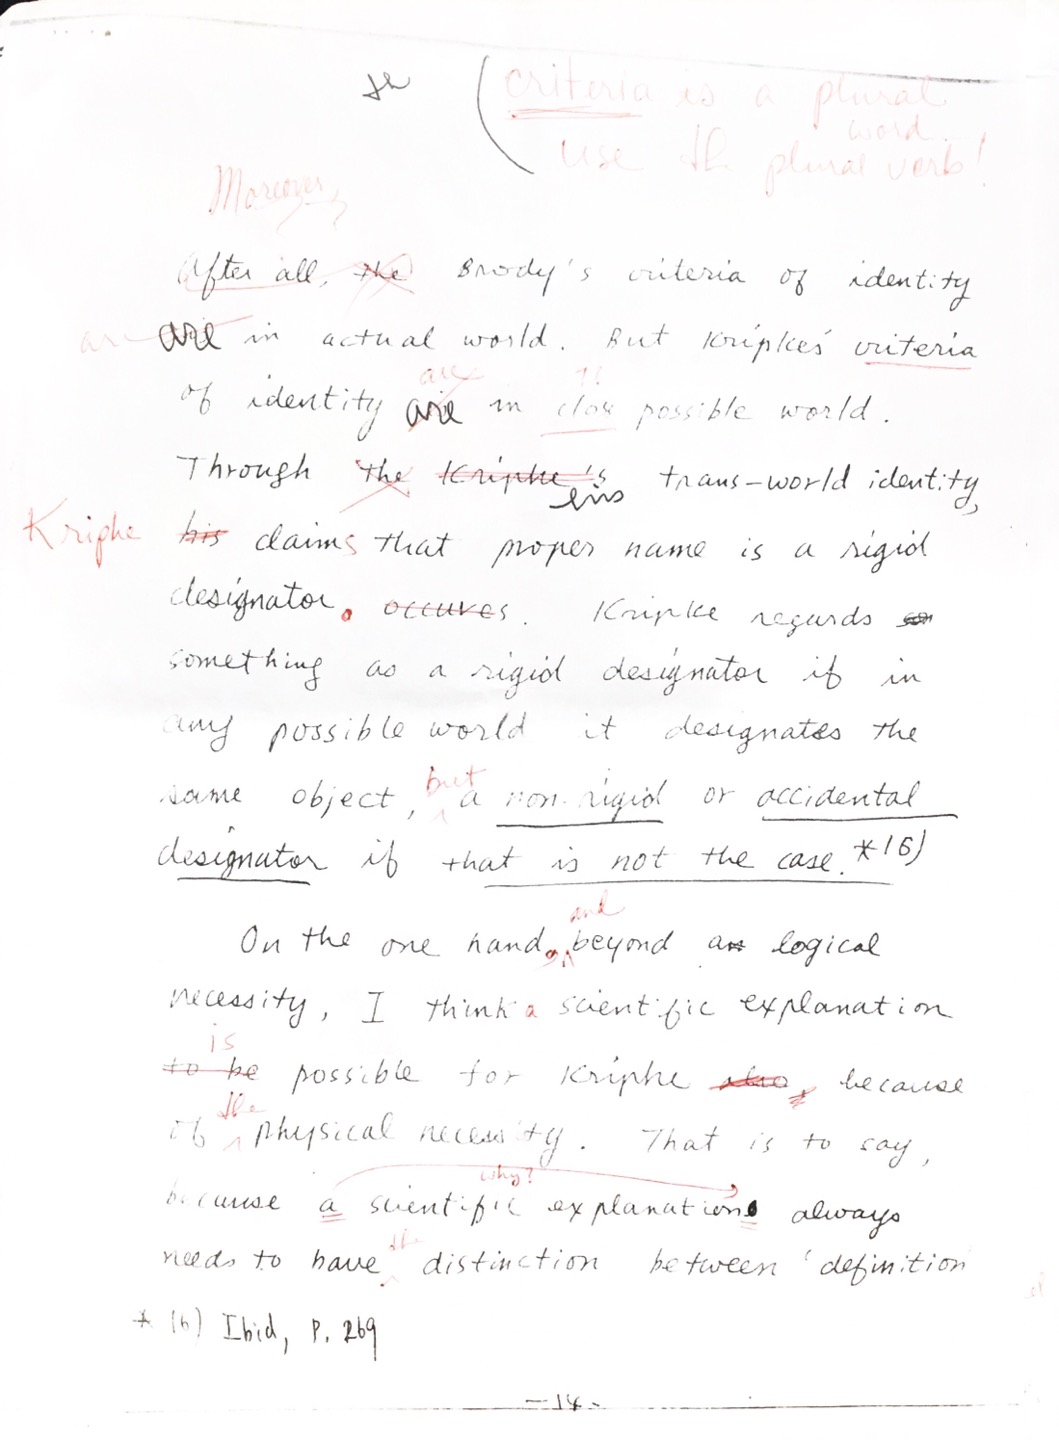 criteria is a plural
word.
use the plural verb!
Moreover,
After all, the Brody's criteria of identity
are are in actual world. But Kripke's criteria
are
of identity are in close possible world.
Through the Kriphe's trans-world identity,
Kriphe his claims that proper name is a rigid
designator. occures. Kripke regards
something as a rigid designator if in
any possible world it designates the
but
same object, a non-rigid or accidental
designator if that is not the case.*(6)
and
On the one hand, beyond a logical
necessity, I think a scientific explanation
is
to be possible for Kriphe also, because
the
of physical necessity. That is to say,
why?
because a scientific explanations always
the
needs to have distinction between 'definition
* (6) Ibid, P. 269
-14-